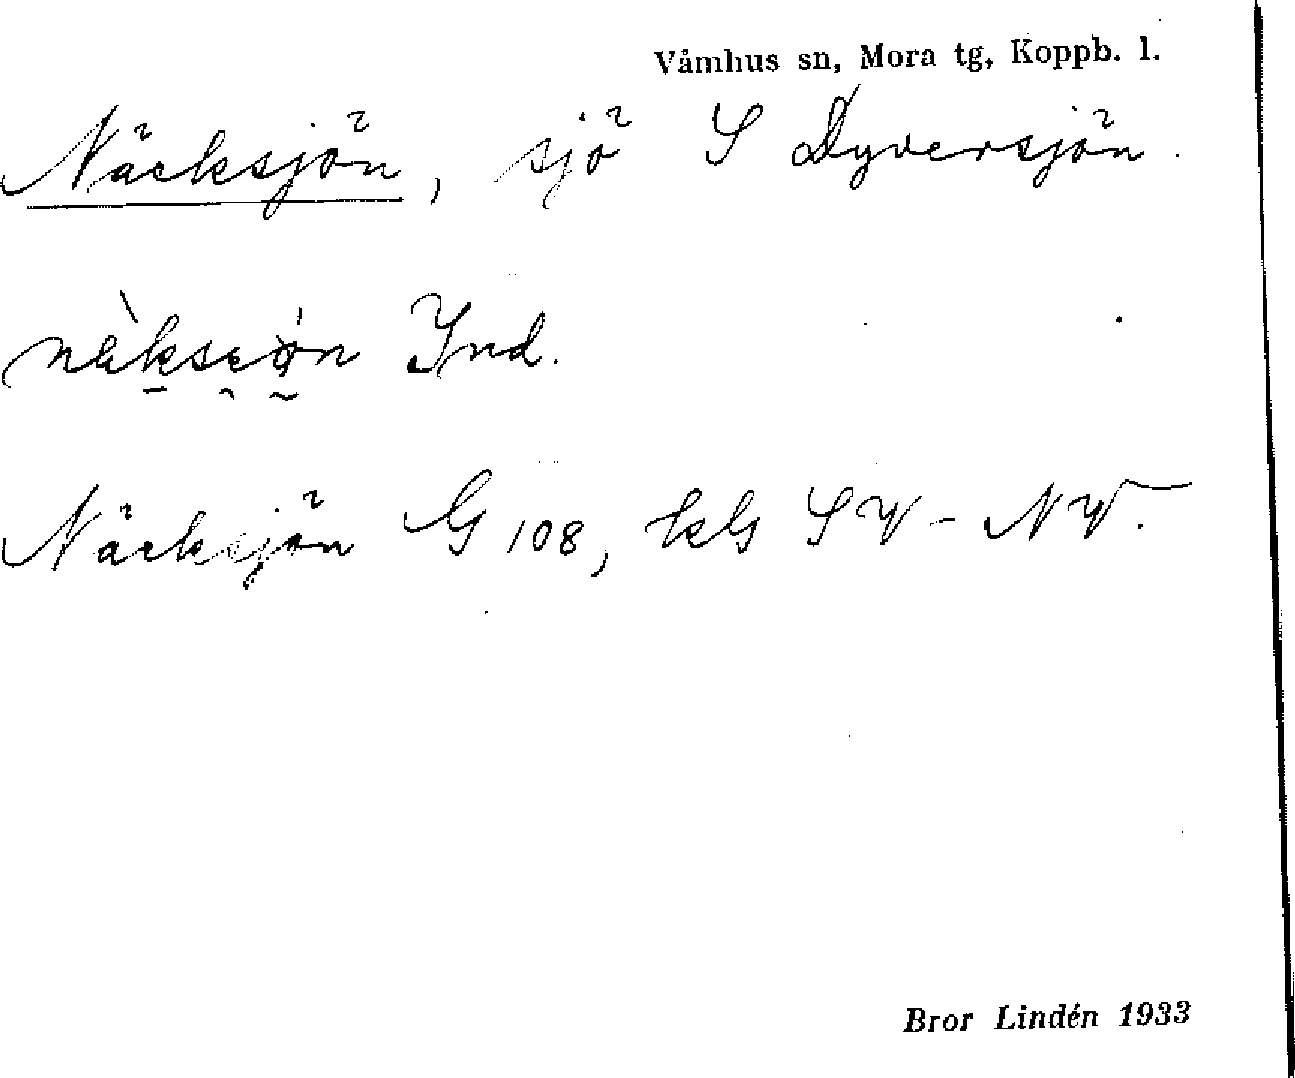 Våmhus sn, Mora tg, Koppb. l.
Näcksjön, sjö S Dyversjön.
Ind.
Näcksjön G 108, kbl SV - NV.
Bror Lindén 1933